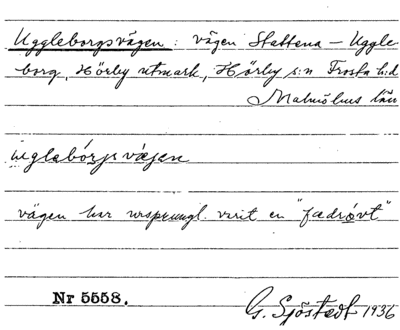 Uggleborgsvägen: vägen Stattena - Uggle-
borg, Hörby utmark, Hörby s:n Frosta h:d
Malmöhus län
uglabórjsvä̀jen
vägen har ursprungl. varit en "fædrövt"
Nr 5558.
G. Sjöstedt 1936